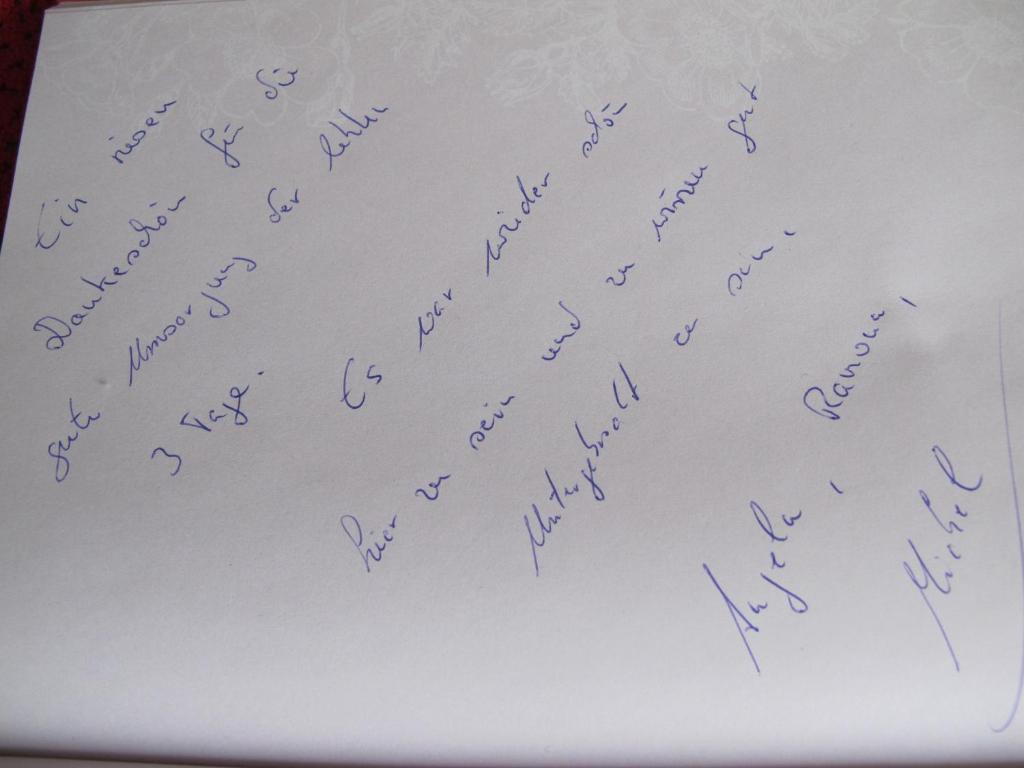 Ein riesen
Dankeschön für die
gute Umsorgung der letzten
3 Tage.
Es war wieder schön
hier zu sein und zu wissen gut
Untergebracht zu sein.
Angela, Ramona,
Michel